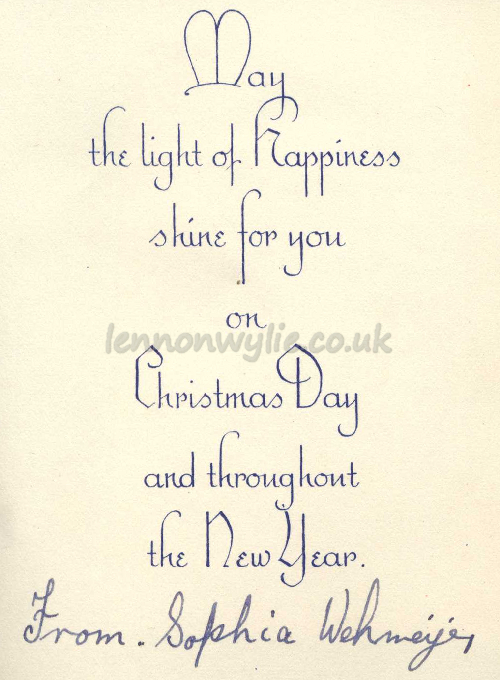 May
the light of Happiness
shine for you
on
lennonwylie.co.uk
Christmas Day
and throughout
the New Year.
From. Sophia Wehmeijer